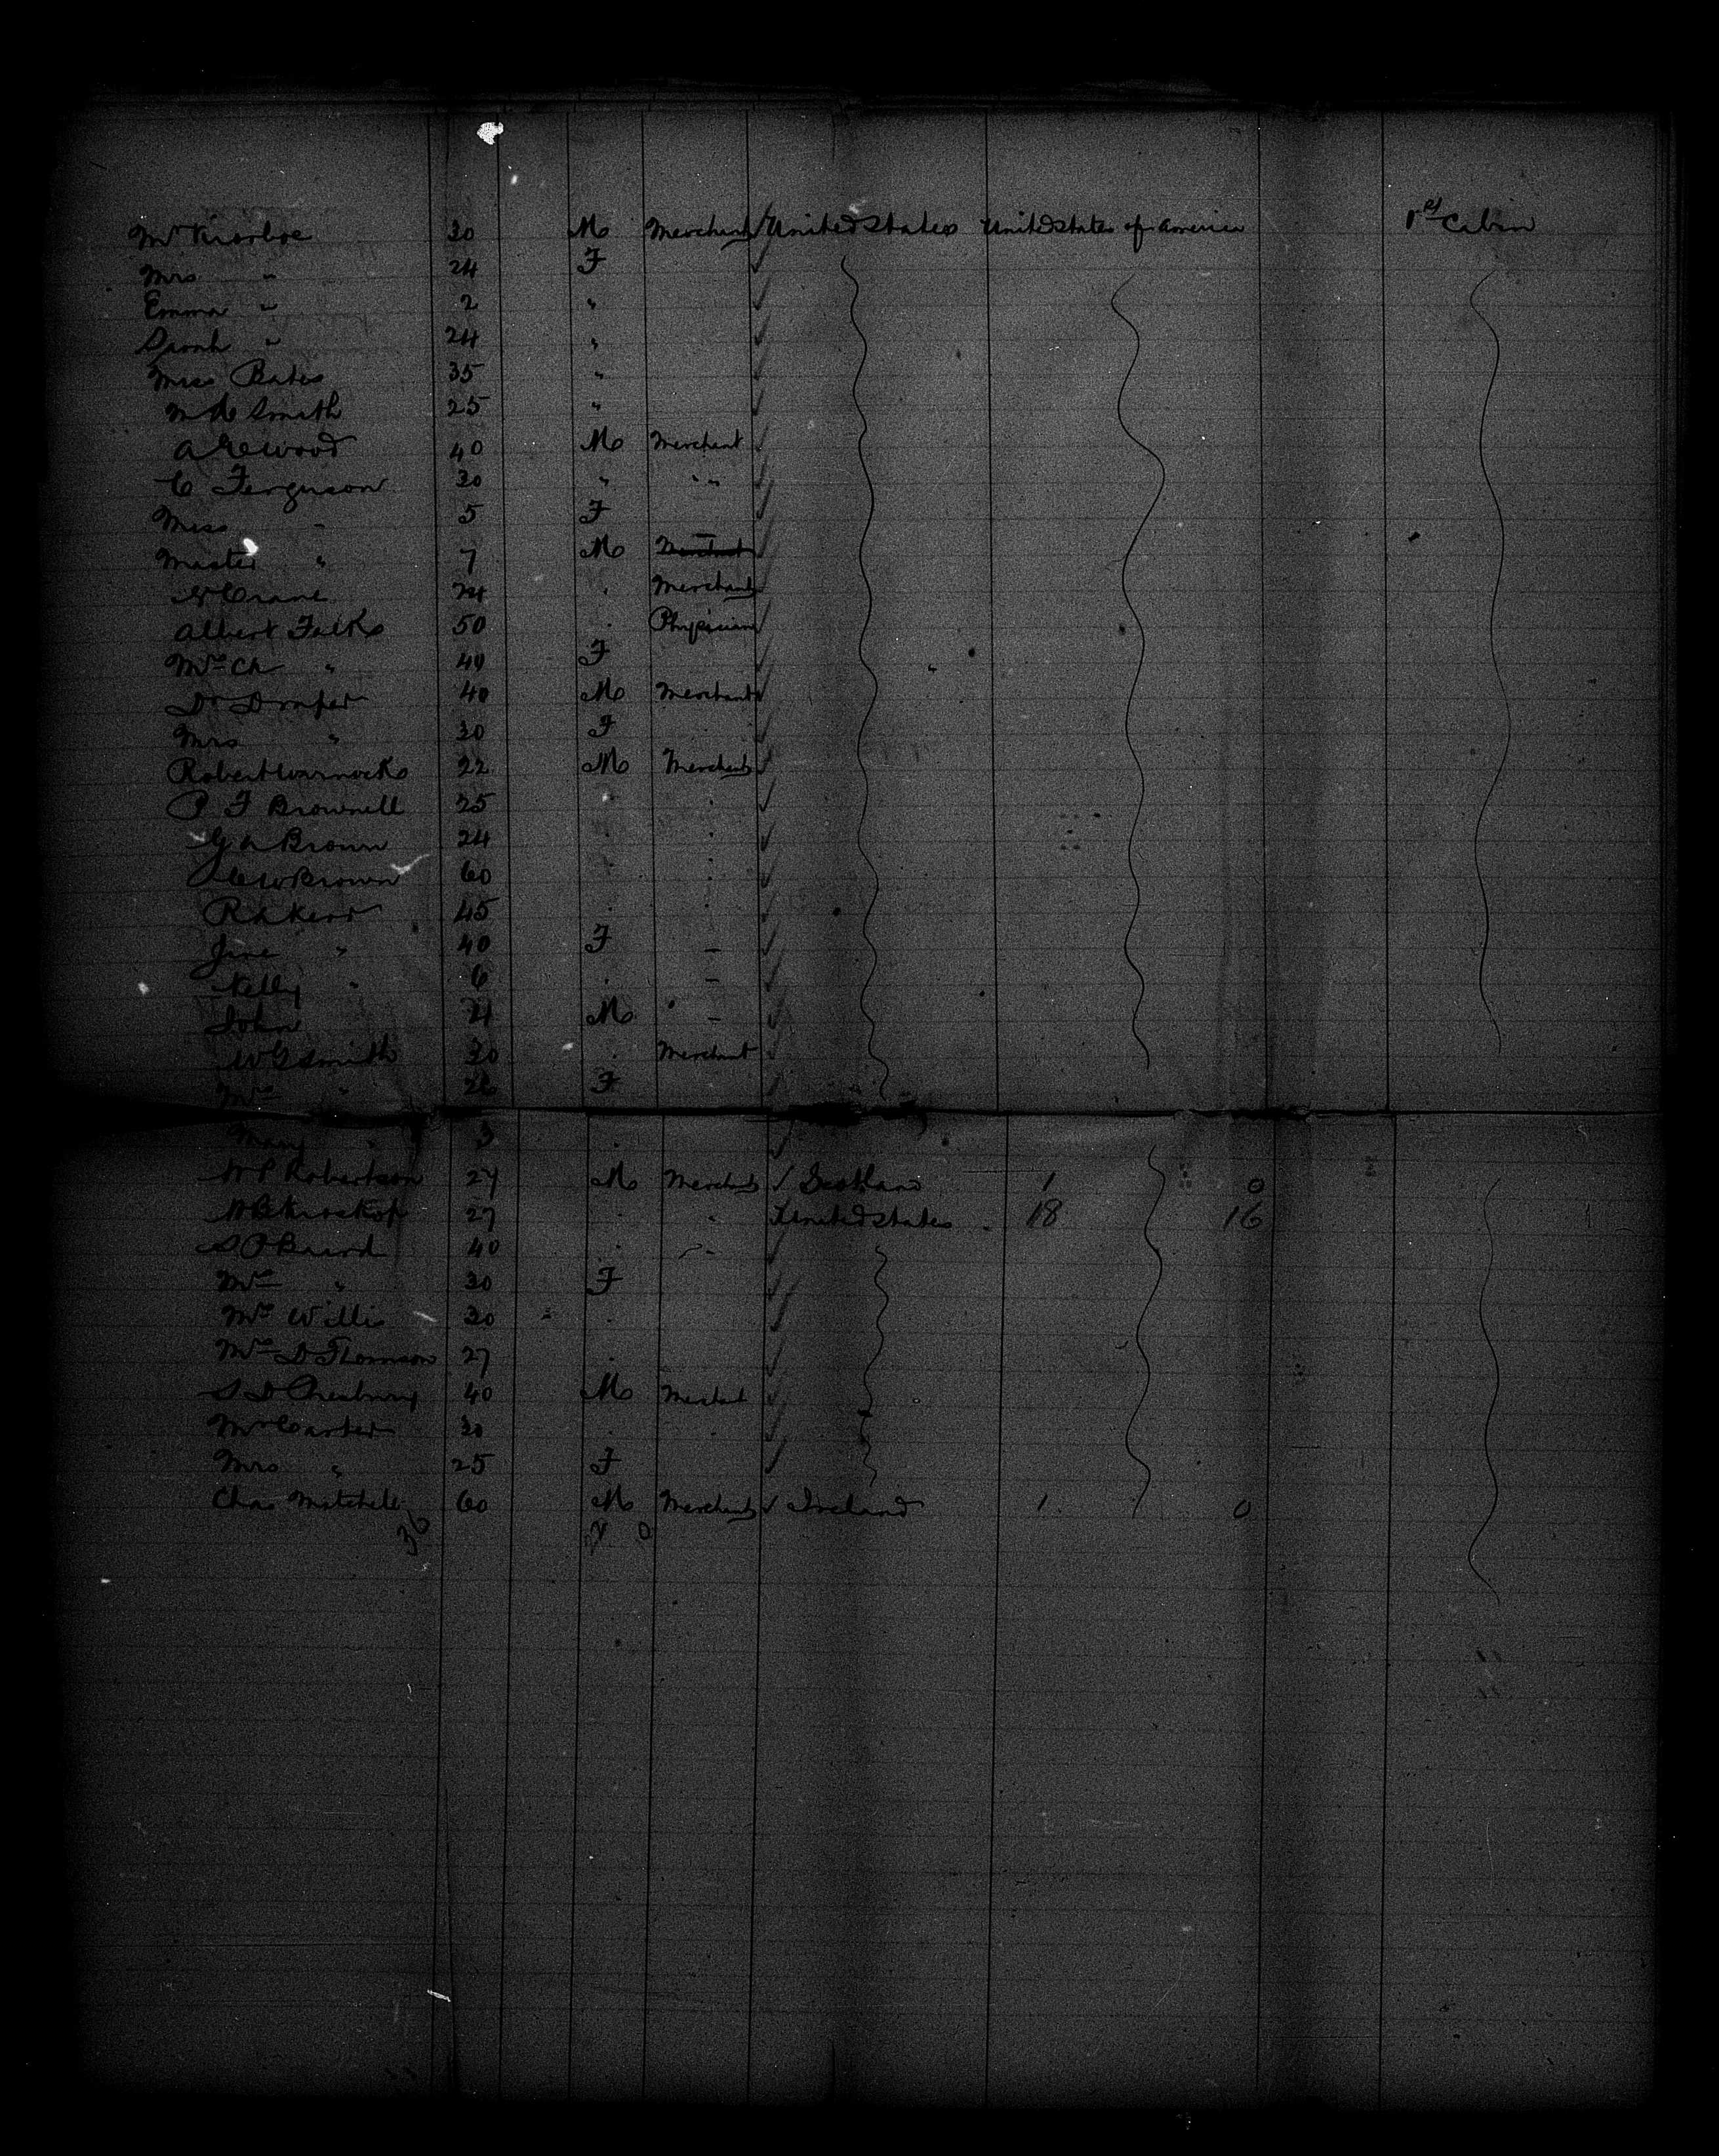 Mr 30 M Merchant United States United States of America 1st Cabin
Mrs " 24 F
Emma " 2 "
Sarah " 24 "
Miss Bates 35 "
Smith 25 "
Wood 40 M Merchant
C Ferguson 30 " " "
Miss " 5 F
Master " 7 M Merchant
Crane 24 . Merchant
Albert Falks 50 . Physician
Mrs Ch " 40 F
Dr Draper 40 M Merchant
Mrs " 30 F
Robert Warnocks 22 M Merchant
P F Brownell 25 . .
G A Brown 24 . .
C W Brown 60 . .
R A Kerr 45 . .
Jane " 40 F -
Nelly " 6 . -
John 4 M -
W G Smith 30 . Merchant
Mrs " 26 F
Mary " 3 .
W P Robertson 27 M Merchant Scotland 1 0
27 . . United States 18 16
S P Baird 40 . " -
Mrs " 30 F
Mrs Willis 30 .
Mrs D Thomson 27 .
S D 40 M Merchant
Mr Carter 30 . .
Mrs " 25 F
Chas Mitchell 60 M Merchant Ireland 1 0
36